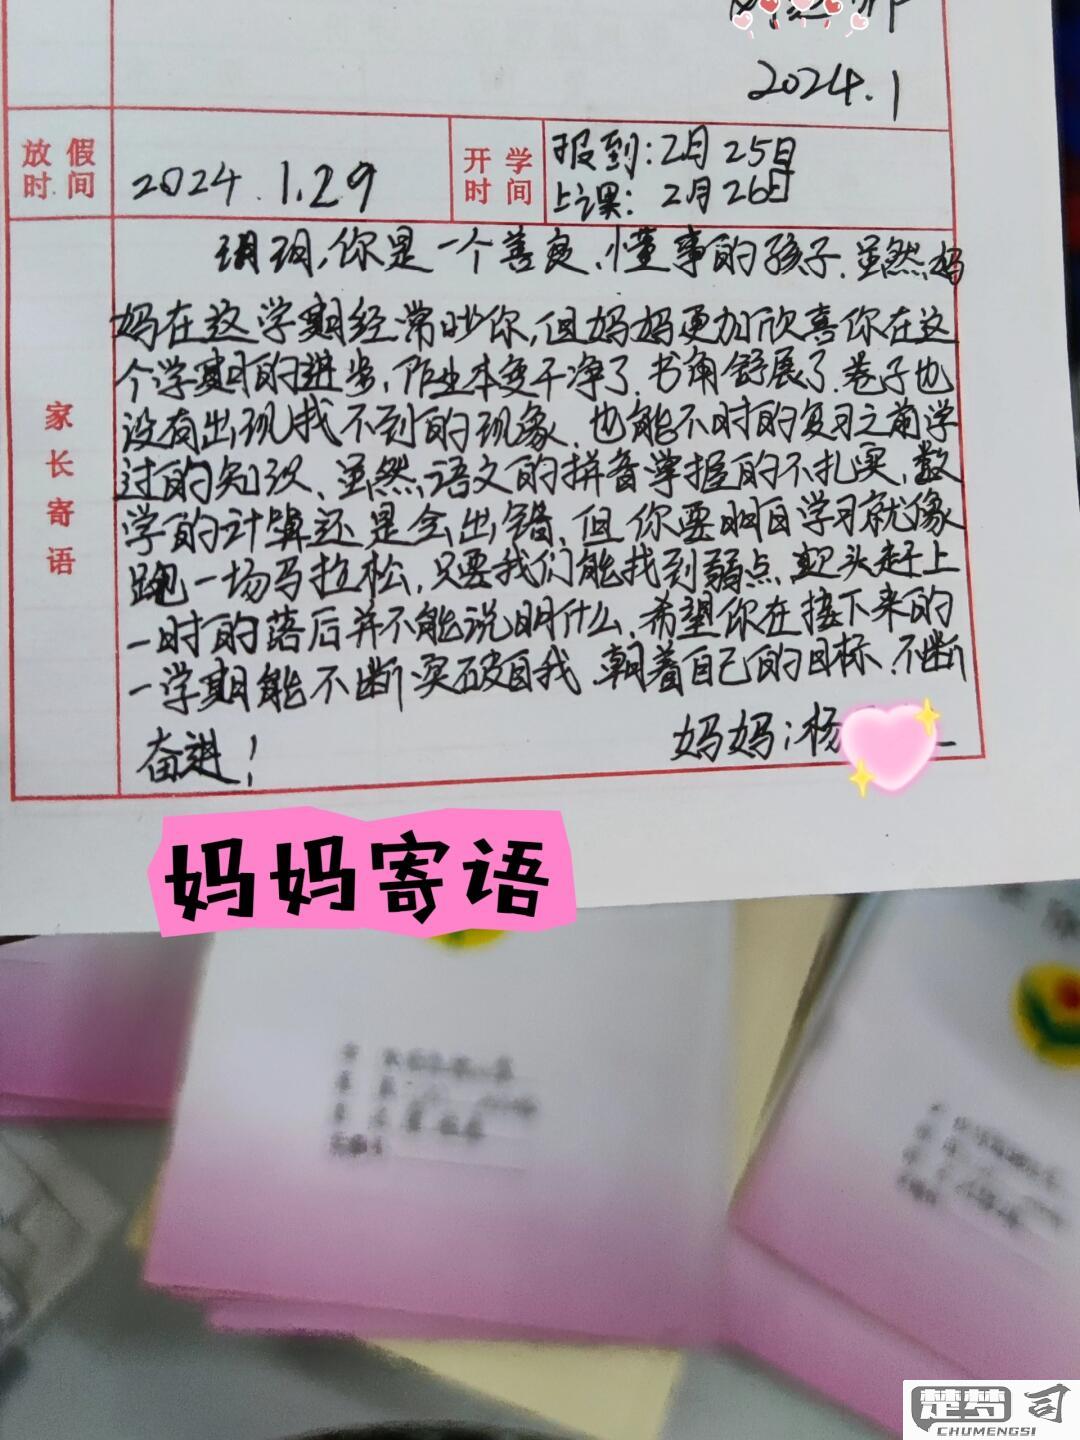 2024.1
放假时间
2024.1.29
开学时间
报到:2月25日
上课:2月26日
家长寄语
玥玥,你是一个善良、懂事的孩子.虽然妈
妈在这学期经常吵你,但妈妈更加欣喜你在这
个学期的进步,作业本变干净了.书角舒展了.卷子也
没有出现找不到的现象.也能不时的复习之前学
过的知识、虽然语文的拼音掌握的不扎实,数
学的计算还是会出错.但你要明白学习就像
跑一场马拉松,只要我们能找到弱点,迎头赶上
一时的落后并不能说明什么.希望你在接下来的
一学期能不断突破自我.朝着自己的目标.不断
奋进!
妈妈:杨
妈妈寄语
楚梦司
CHUMENGSI